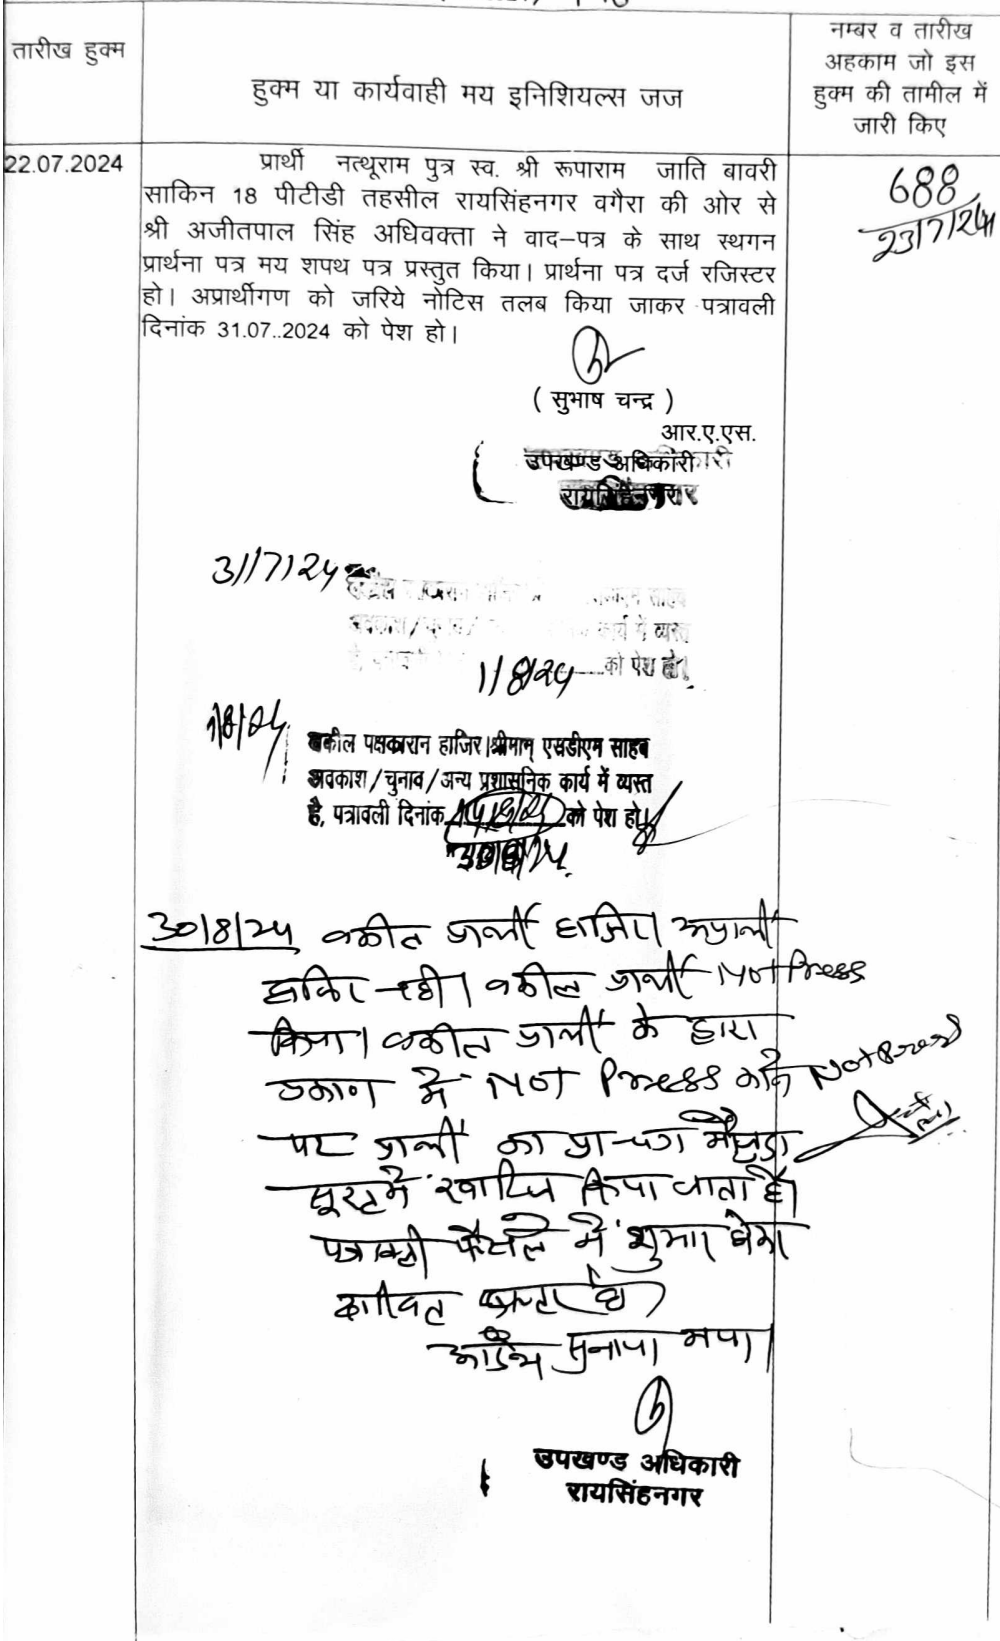 तारीख हुक्म
हुक्म या कार्यवाही मय इनिशियल्स जज
नम्बर व तारीख
अहकाम जो इस
हुक्म की तामील में
जारी किए
22.07.2024
प्रार्थी नत्थूराम पुत्र स्व. श्री रूपाराम जाति बावरी
साकिन 18 पीटीडी तहसील रायसिंहनगर वगैरा की ओर से
श्री अजीतपाल सिंह अधिवक्ता ने वाद–पत्र के साथ स्थगन
प्रार्थना पत्र मय शपथ पत्र प्रस्तुत किया। प्रार्थना पत्र दर्ज रजिस्टर
हो। अप्रार्थीगण को जरिये नोटिस तलब किया जाकर पत्रावली
दिनांक 31.07..2024 को पेश हो।
688
23/7/24
( सुभाष चन्द्र )
आर.ए.एस.
उपखण्ड अधिकारी
रायसिंहनगर
31/7/24
साहब
कार्य में व्यस्त
1/8/24 को पेश हो।
1/8/24
वकील पक्षकारान हाजिर।श्रीमान् एसडीएम साहब
अवकाश/चुनाव/अन्य प्रशासनिक कार्य में व्यस्त
है, पत्रावली दिनांक को पेश हो।
30/8/24
30/8/24 वकील प्रार्थी हाजिर। अप्रार्थी
हाजिर नही। वकील प्रार्थी Not Press
किया। वकील प्रार्थी के द्वारा
प्रकरण में Not Press करने Not Press
पर प्रार्थी का प्रा-पत्र
में खारिज किया जाता है।
पत्रावली फैसले में शुमार होकर
दफ्तर हो
आदेश सुनाया गया।
उपखण्ड अधिकारी
रायसिंहनगर